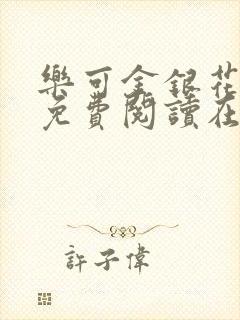 樂可金銀花
免費閱讀在
許子偉